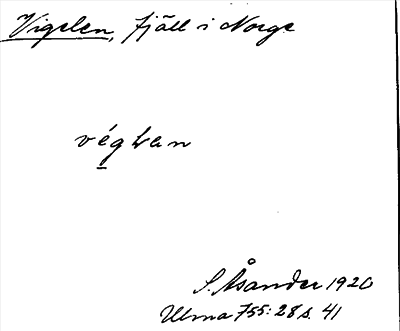 Vigelen, fjäll i Norge
végḷan
S. Åsander 1920
Ulma 755:28 s. 41